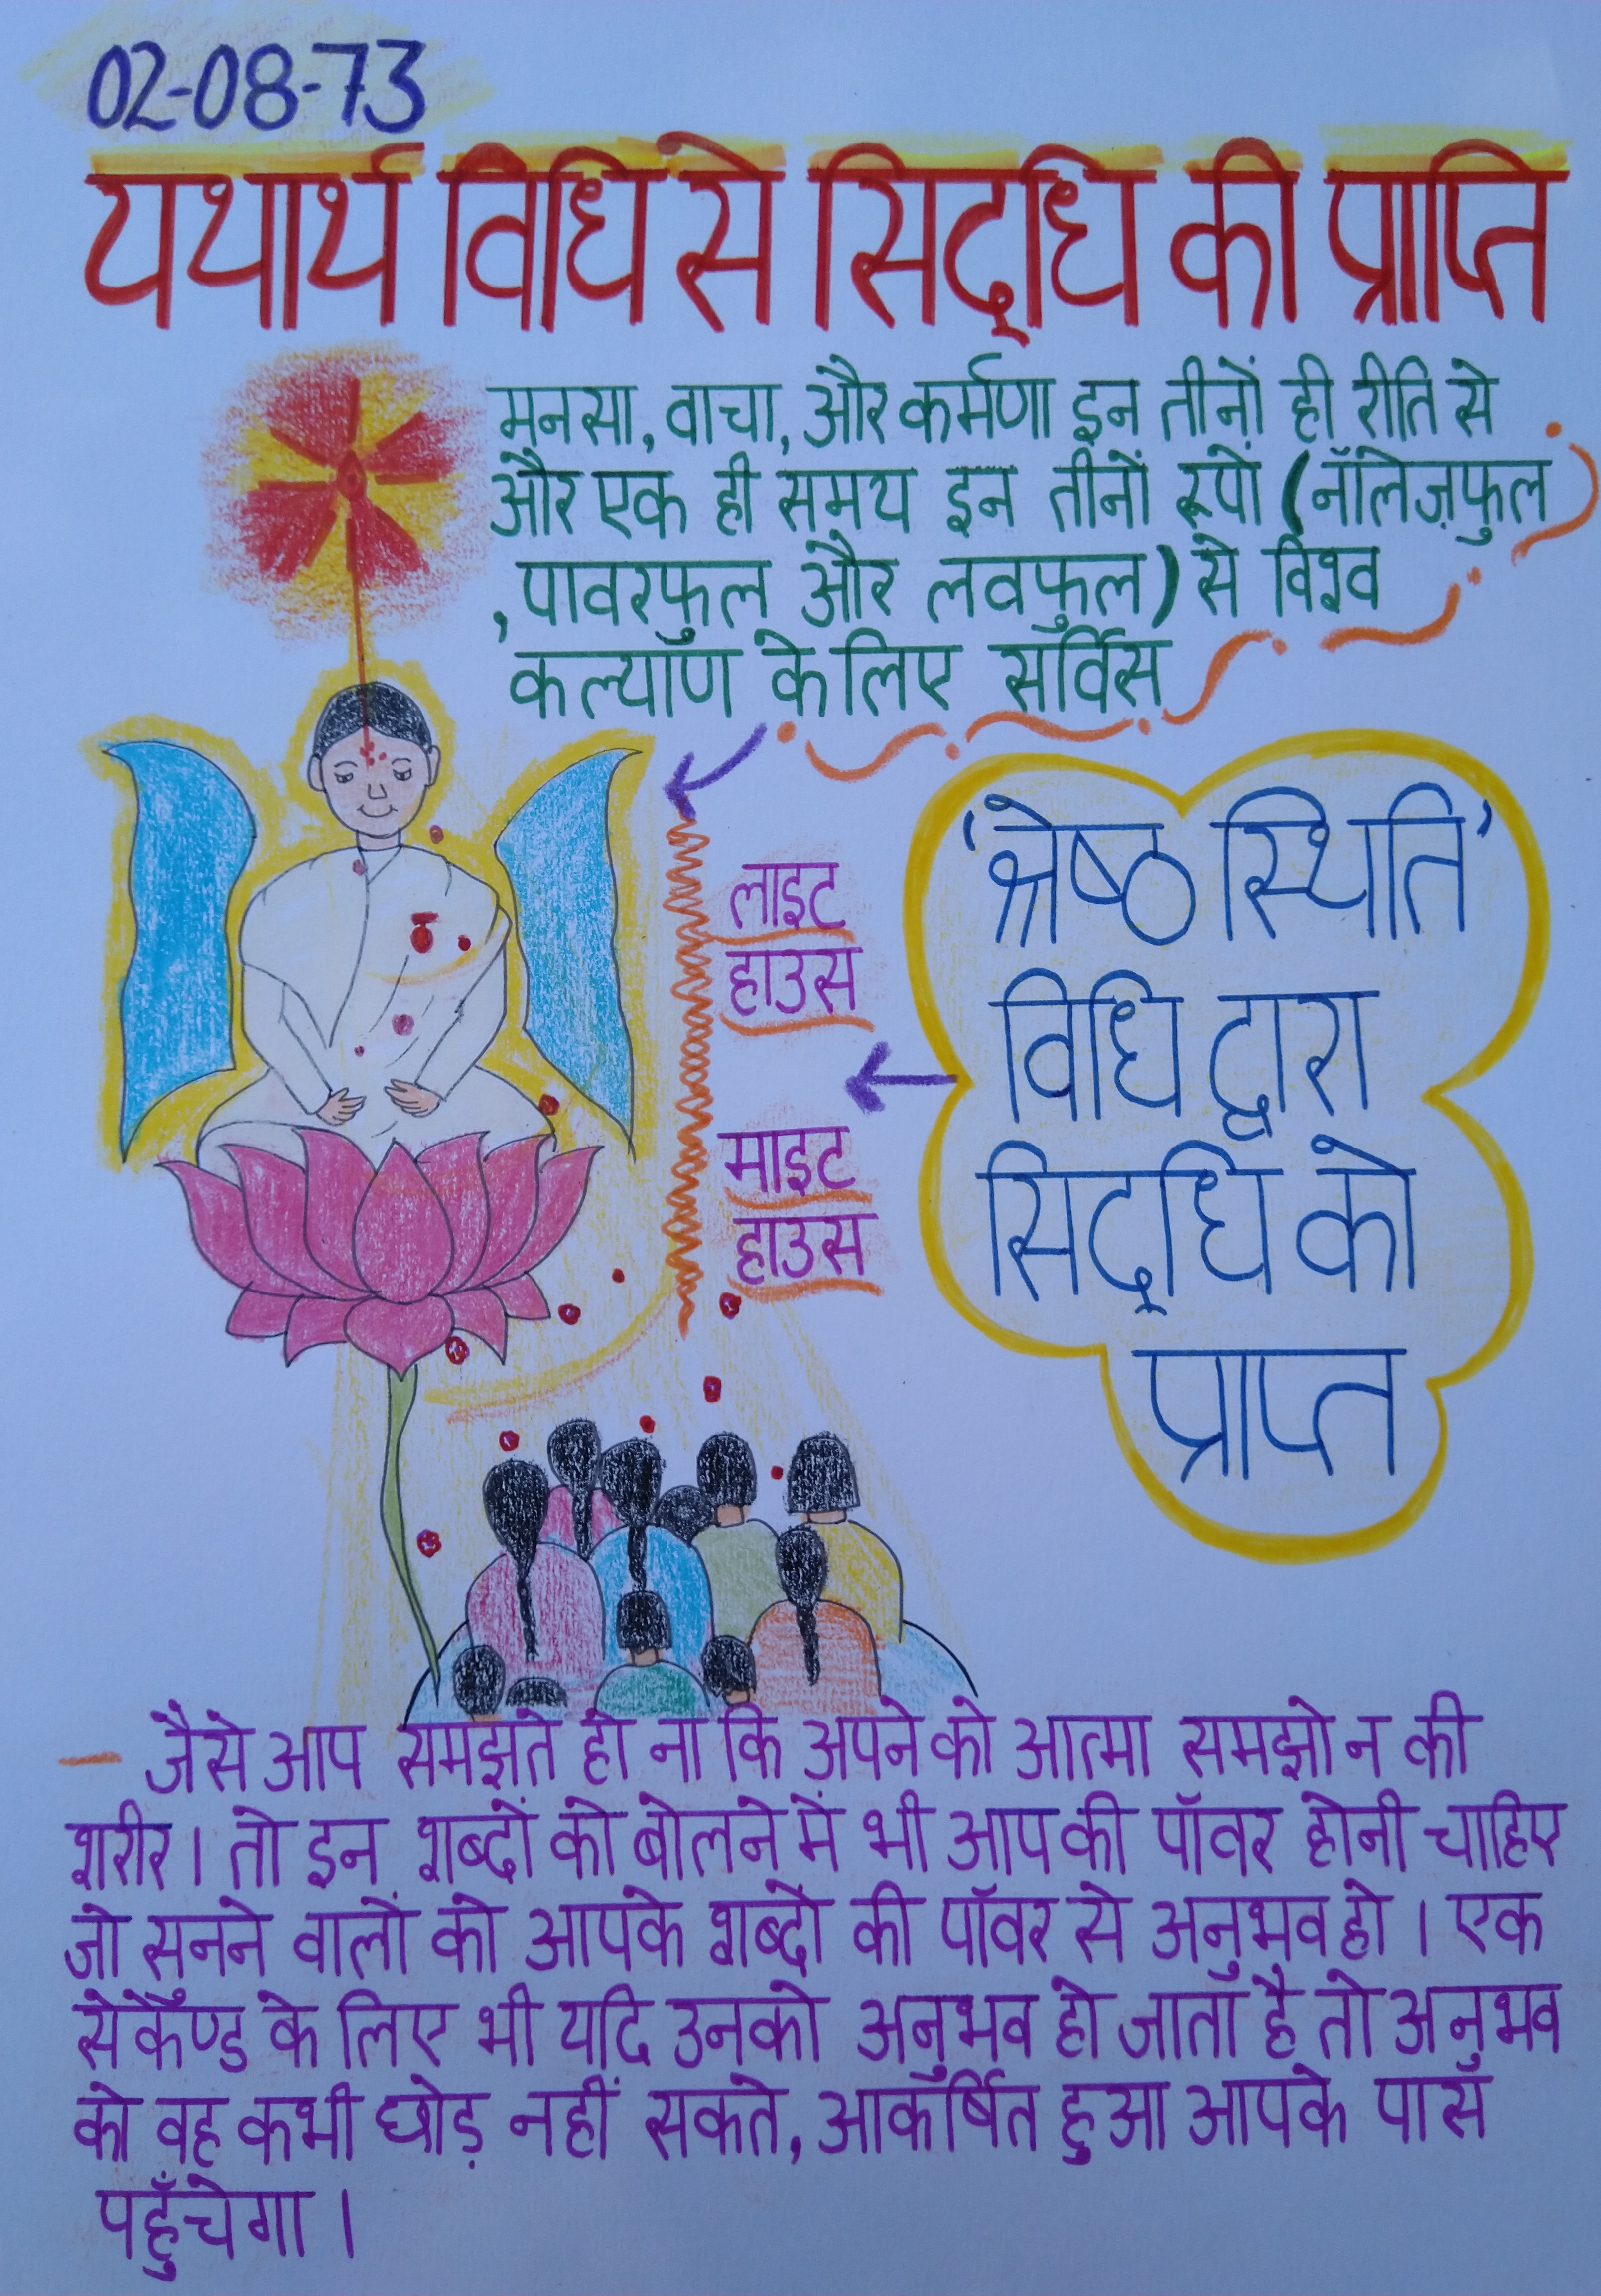 02-08-73
यथार्थ विधि से सिद्धि की प्राप्ति
मनसा, वाचा, और कर्मणा इन तीनों ही रीति से
और एक ही समय इन तीनों रूपों (नॉलेज़फुल
, पावरफुल और लवफुल) से विश्व
कल्याण के लिए सर्विस
लाइट
हाउस
माइट
हाउस
'श्रेष्ठ स्थिति'
विधि द्वारा
सिद्धि को
प्राप्त
— जैसे आप समझते हो ना कि अपने को आत्मा समझो न की
शरीर। तो इन शब्दों को बोलने में भी आप की पॉवर होनी चाहिए
जो सुनने वालों को आपके शब्दों की पॉवर से अनुभव हो । एक
सेकेण्ड के लिए भी यदि उनको अनुभव हो जाता है तो अनुभव
को वह कभी छोड़ नहीं सकते, आकर्षित हुआ आपके पास
पहुँचेगा ।